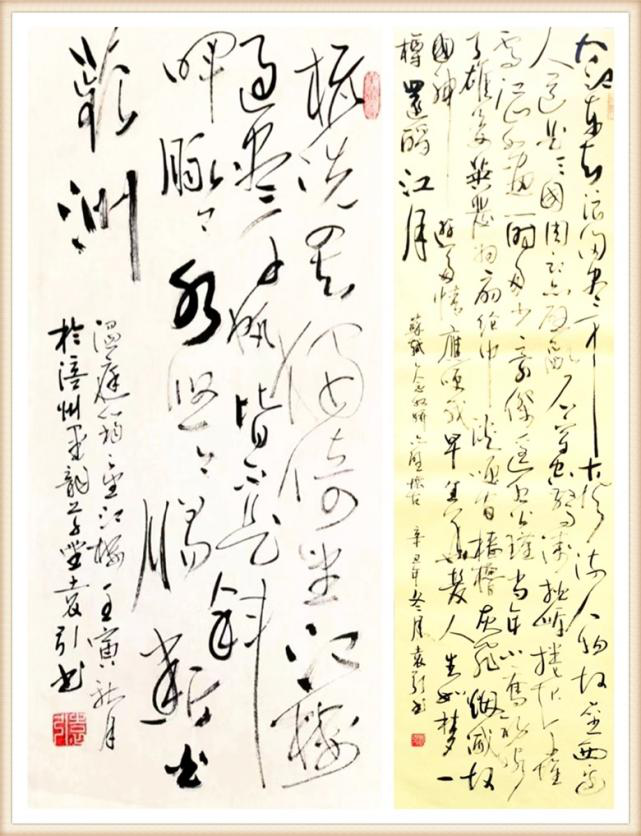 大江東去浪淘盡千古風流人物故壘西邊
人道是三國周郎赤壁亂石穿空驚濤拍岸捲起千堆
雪江山如畫一時多少豪傑遙想公瑾當年小喬初嫁
了雄姿英發羽扇綸巾談笑間檣櫓灰飛煙滅故
國神遊多情應笑我早生華髮人生如夢一
樽還酹江月
蘇軾念奴嬌赤壁懷古 辛丑年冬月袁引书
梳洗罢獨倚望江樓
過盡千帆皆不是斜
暉脉脉水悠悠腸斷白
蘋洲
温庭筠望江梅壬寅秋月
於涪州墨韵草堂袁引书